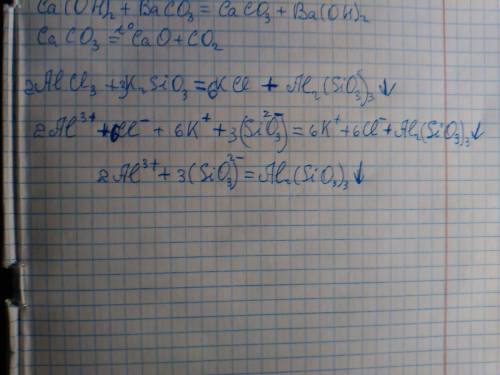 Ca(OH)₂ + BaCO₃ = CaCO₃ + Ba(OH)₂
CaCO₃ =t°= CaO + CO₂
2AlCl₃ + 3K₂SiO₃ = 6KCl + Al₂(SiO₃)₃↓
2Al³⁺ + 6Cl⁻ + 6K⁺ + 3(SiO₃)²⁻ = 6K⁺ + 6Cl⁻ + Al₂(SiO₃)₃↓
2Al³⁺ + 3(SiO₃)²⁻ = Al₂(SiO₃)₃↓